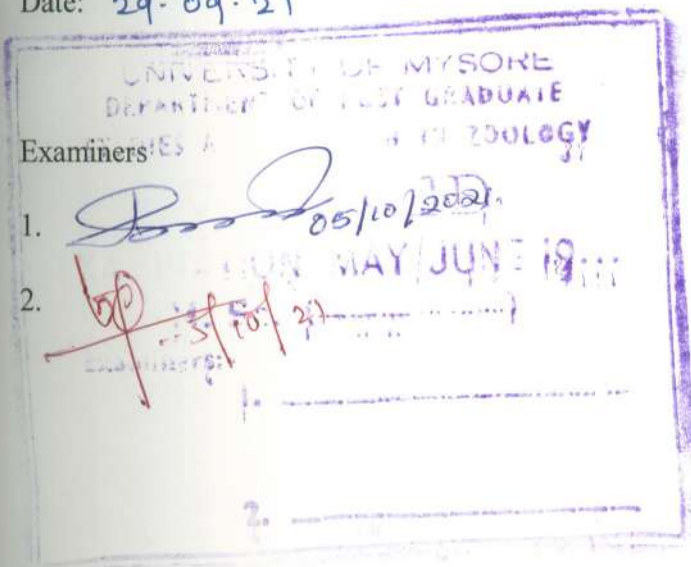 Date: 29-09-21
UNIVERSITY OF MYSORE
DEPARTMENT OF POST GRADUATE
ZOOLOGY
Examiners
1. 05/10/2021
MAY/JUNE 19...
2. 5/10/21
Examiners:
1.
2.